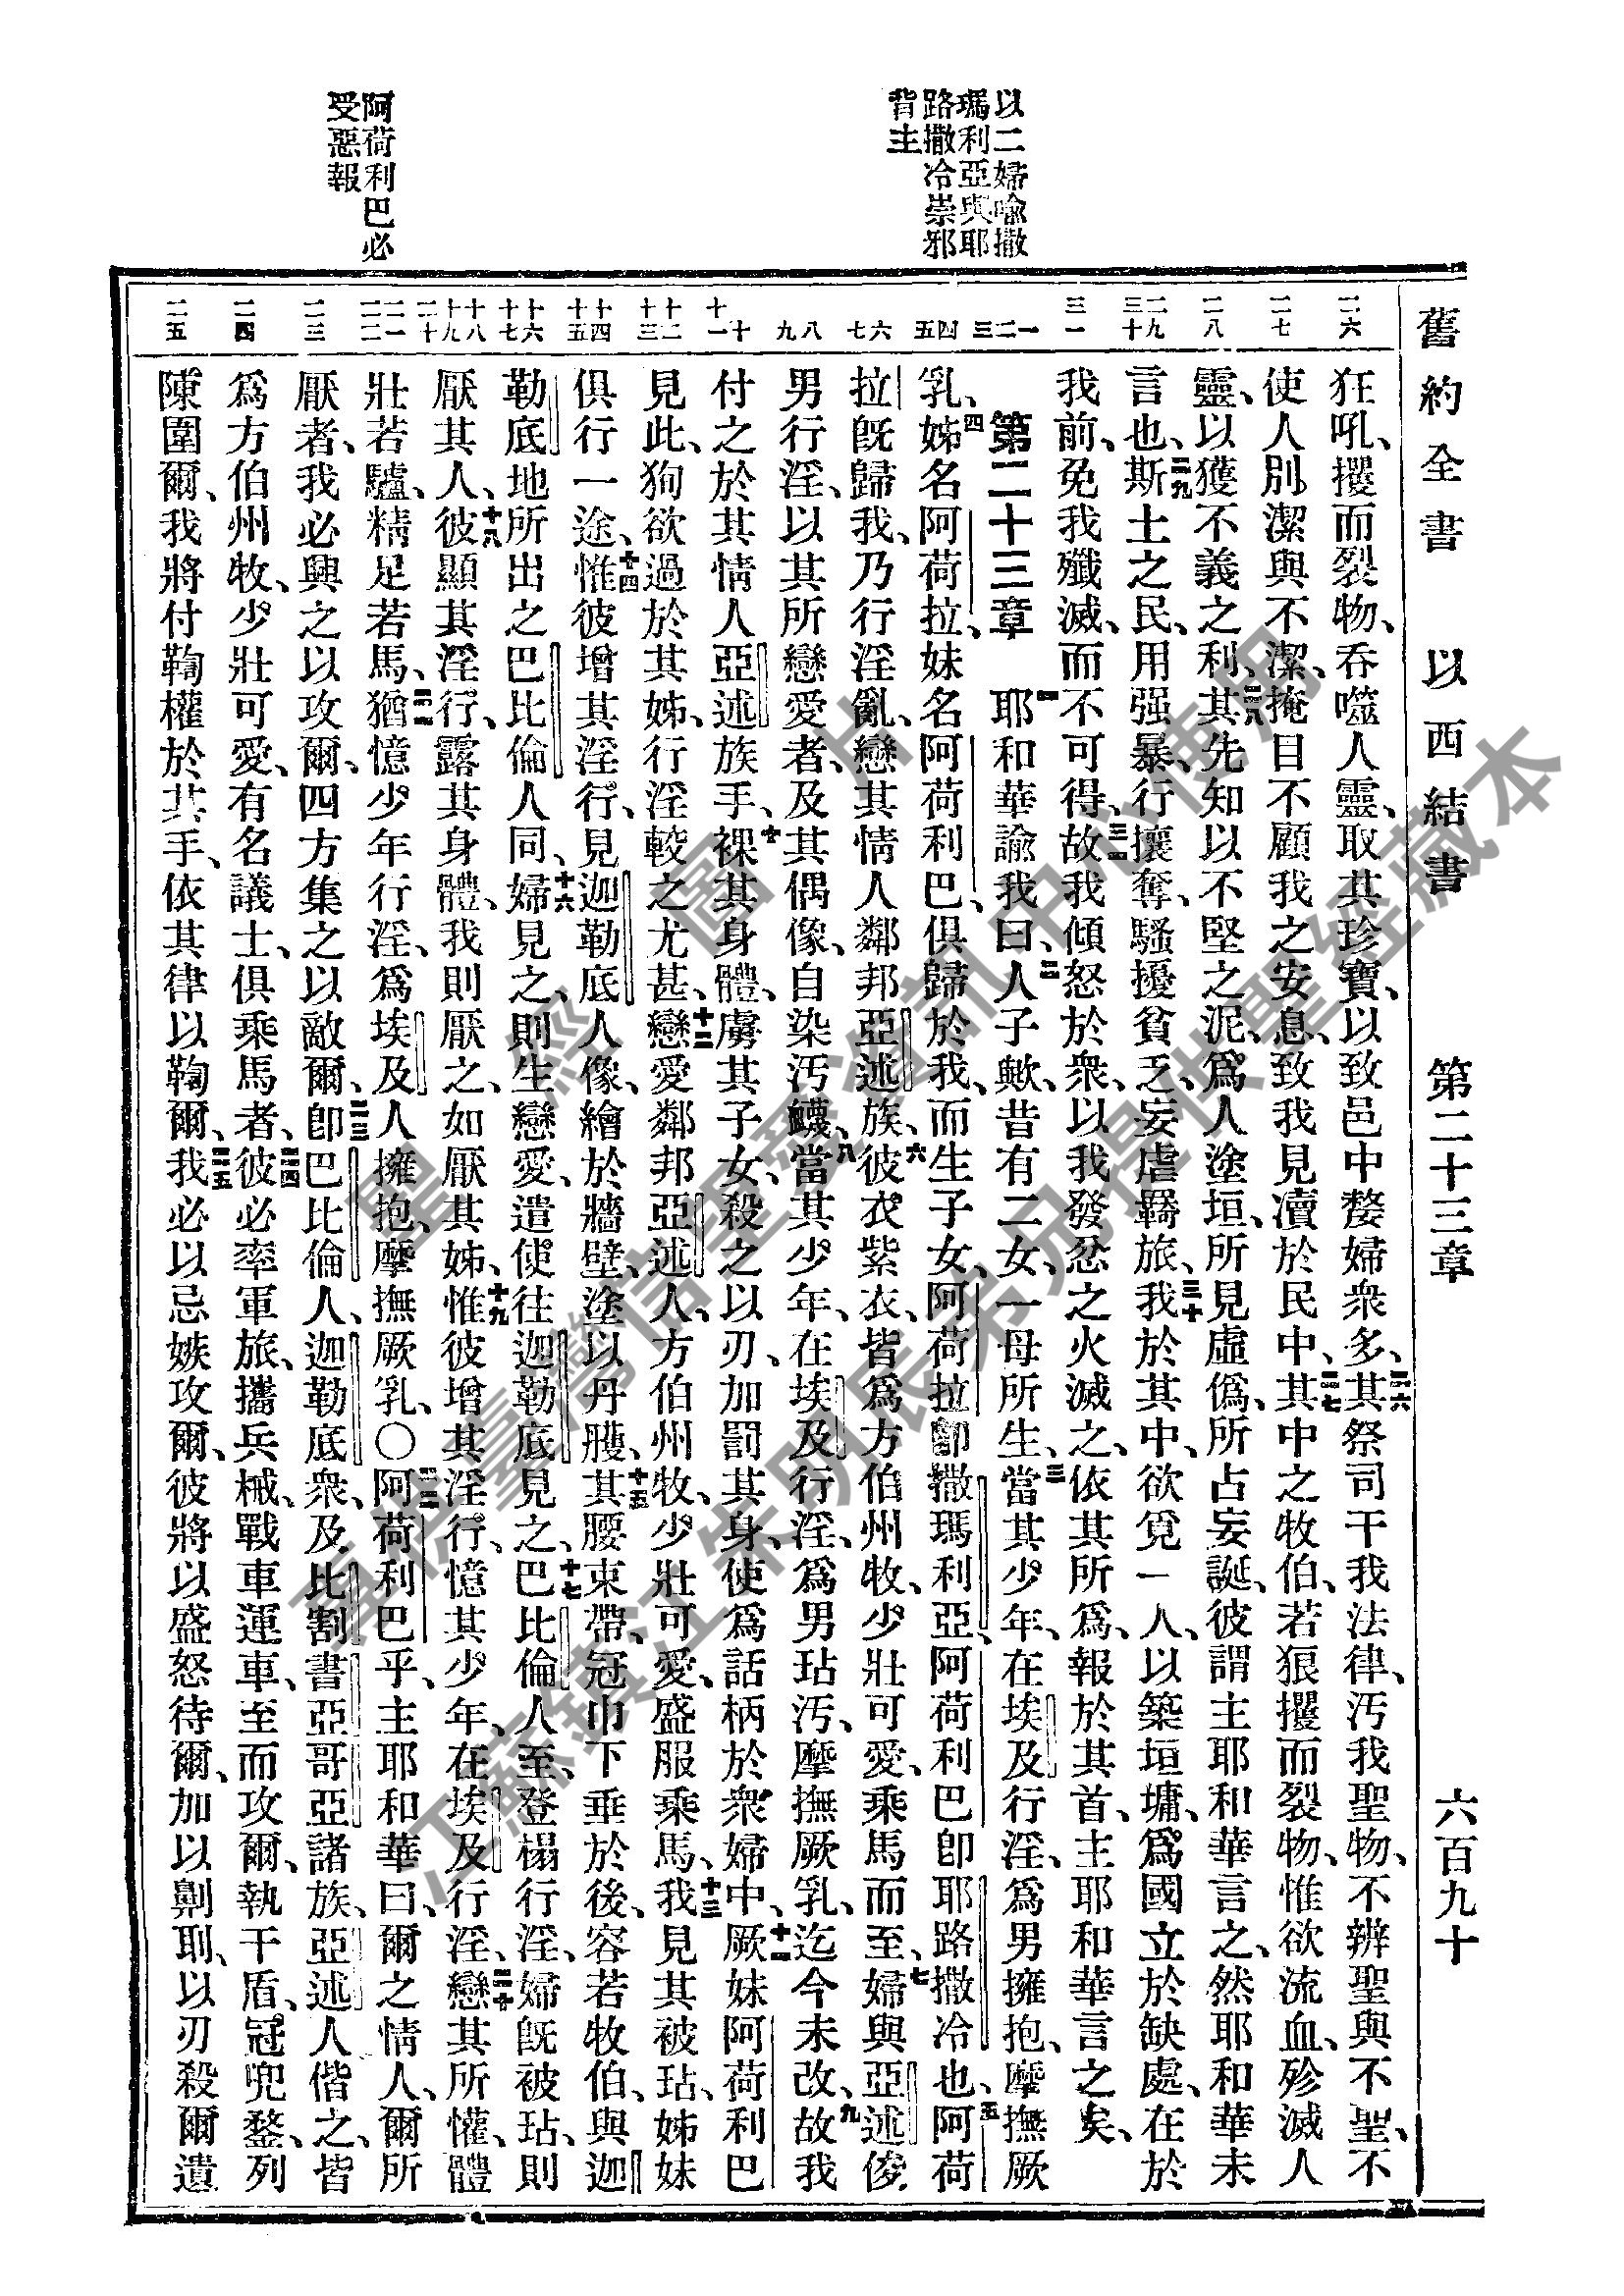 舊約全書 以西結書 第二十三章 六百九十
以二婦喩撒
瑪利亞與耶
路撒冷崇邪
背主
阿荷利巴必
受惡報
二六
二七
二八
二九 三十
三一
一 二 三
四 五
六 七
八 九
十 十一
十二 十三
十四 十五
十六 十七
十八 十九 二十
二一 二二
二三
二四
二五
狂吼、攫而裂物、吞噬人靈、取其珍寶、以致邑中嫠婦衆多、二六其祭司干我法律、汚我聖物、不辨聖與不聖、不
使人別潔與不潔、掩目不顧我之安息、致我見瀆於民中、二七其中之牧伯、若狼攫而裂物、惟欲流血、殄滅人
靈、以獲不義之利、二八其先知以不堅之泥、爲人塗垣、所見虛僞、所占妄誕、彼謂主耶和華言之、然耶和華未
言也、二九斯土之民、用强暴、行攘奪、騷擾貧乏、妄虐羇旅、三十我於其中、欲覓一人、以築垣墉、爲國立於缺處、在於
我前、免我殲滅、而不可得、三一故我傾怒於衆、以我發忿之火滅之、依其所爲、報於其首、主耶和華言之矣、
第二十三章 一耶和華諭我曰、二人子歟、昔有二女、一母所生、三當其少年、在埃及行淫、爲男擁抱、摩撫厥
乳、四姊名阿荷拉、妹名阿荷利巴、俱歸於我、而生子女、阿荷拉卽撒瑪利亞、阿荷利巴卽耶路撒冷也、五阿荷
拉旣歸我、乃行淫亂、戀其情人鄰邦亞述族、六彼衣紫衣、皆爲方伯州牧、少壯可愛、乘馬而至、七婦與亞述俊
男行淫、以其所戀愛者、及其偶像、自染汚衊、八當其少年、在埃及行淫、爲男玷汚、摩撫厥乳、迄今未改、九故我
付之於其情人亞述族手、十裸其身體、虜其子女、殺之以刃、加罰其身、使爲話柄於衆婦中、十一厥妹阿荷利巴
見此、狥欲過於其姊、行淫較之尤甚、十二戀愛鄰邦亞述人、方伯州牧、少壯可愛、盛服乘馬、十三我見其被玷、姊妹
俱行一途、十四惟彼增其淫行、見迦勒底人像、繪於牆壁、塗以丹雘、十五其腰束帶、冠巾下垂於後、容若牧伯、與迦
勒底地所出之巴比倫人同、十六婦見之、則生戀愛、遣使往迦勒底見之、十七巴比倫人至、登榻行淫、婦旣被玷、則
厭其人、十八彼顯其淫行、露其身體、我則厭之、如厭其姊、十九惟彼增其淫行、憶其少年、在埃及行淫、二十戀其所懽、體
壯若驢、精足若馬、二一猶憶少年行淫、爲埃及人擁抱、摩撫厥乳、○二二阿荷利巴乎、主耶和華曰、爾之情人、爾所
厭者、我必興之以攻爾、四方集之以敵爾、二三卽巴比倫人、迦勒底衆、及比割書亞哥亞諸族、亞述人偕之、皆
爲方伯州牧、少壯可愛、有名議士、俱乘馬者、二四彼必率軍旅、攜兵械、戰車運車、至而攻爾、執干盾、冠兜鍪、列
陳圍爾、我將付鞫權於其手、依其律以鞫爾、二五我必以忌嫉攻爾、彼將以盛怒待爾、加以劓刵、以刃殺爾遺
圖片
聖經
臺灣信望愛資訊中心使用
專供
江蘇鎮江朱明辰弟兄提供聖經藏本